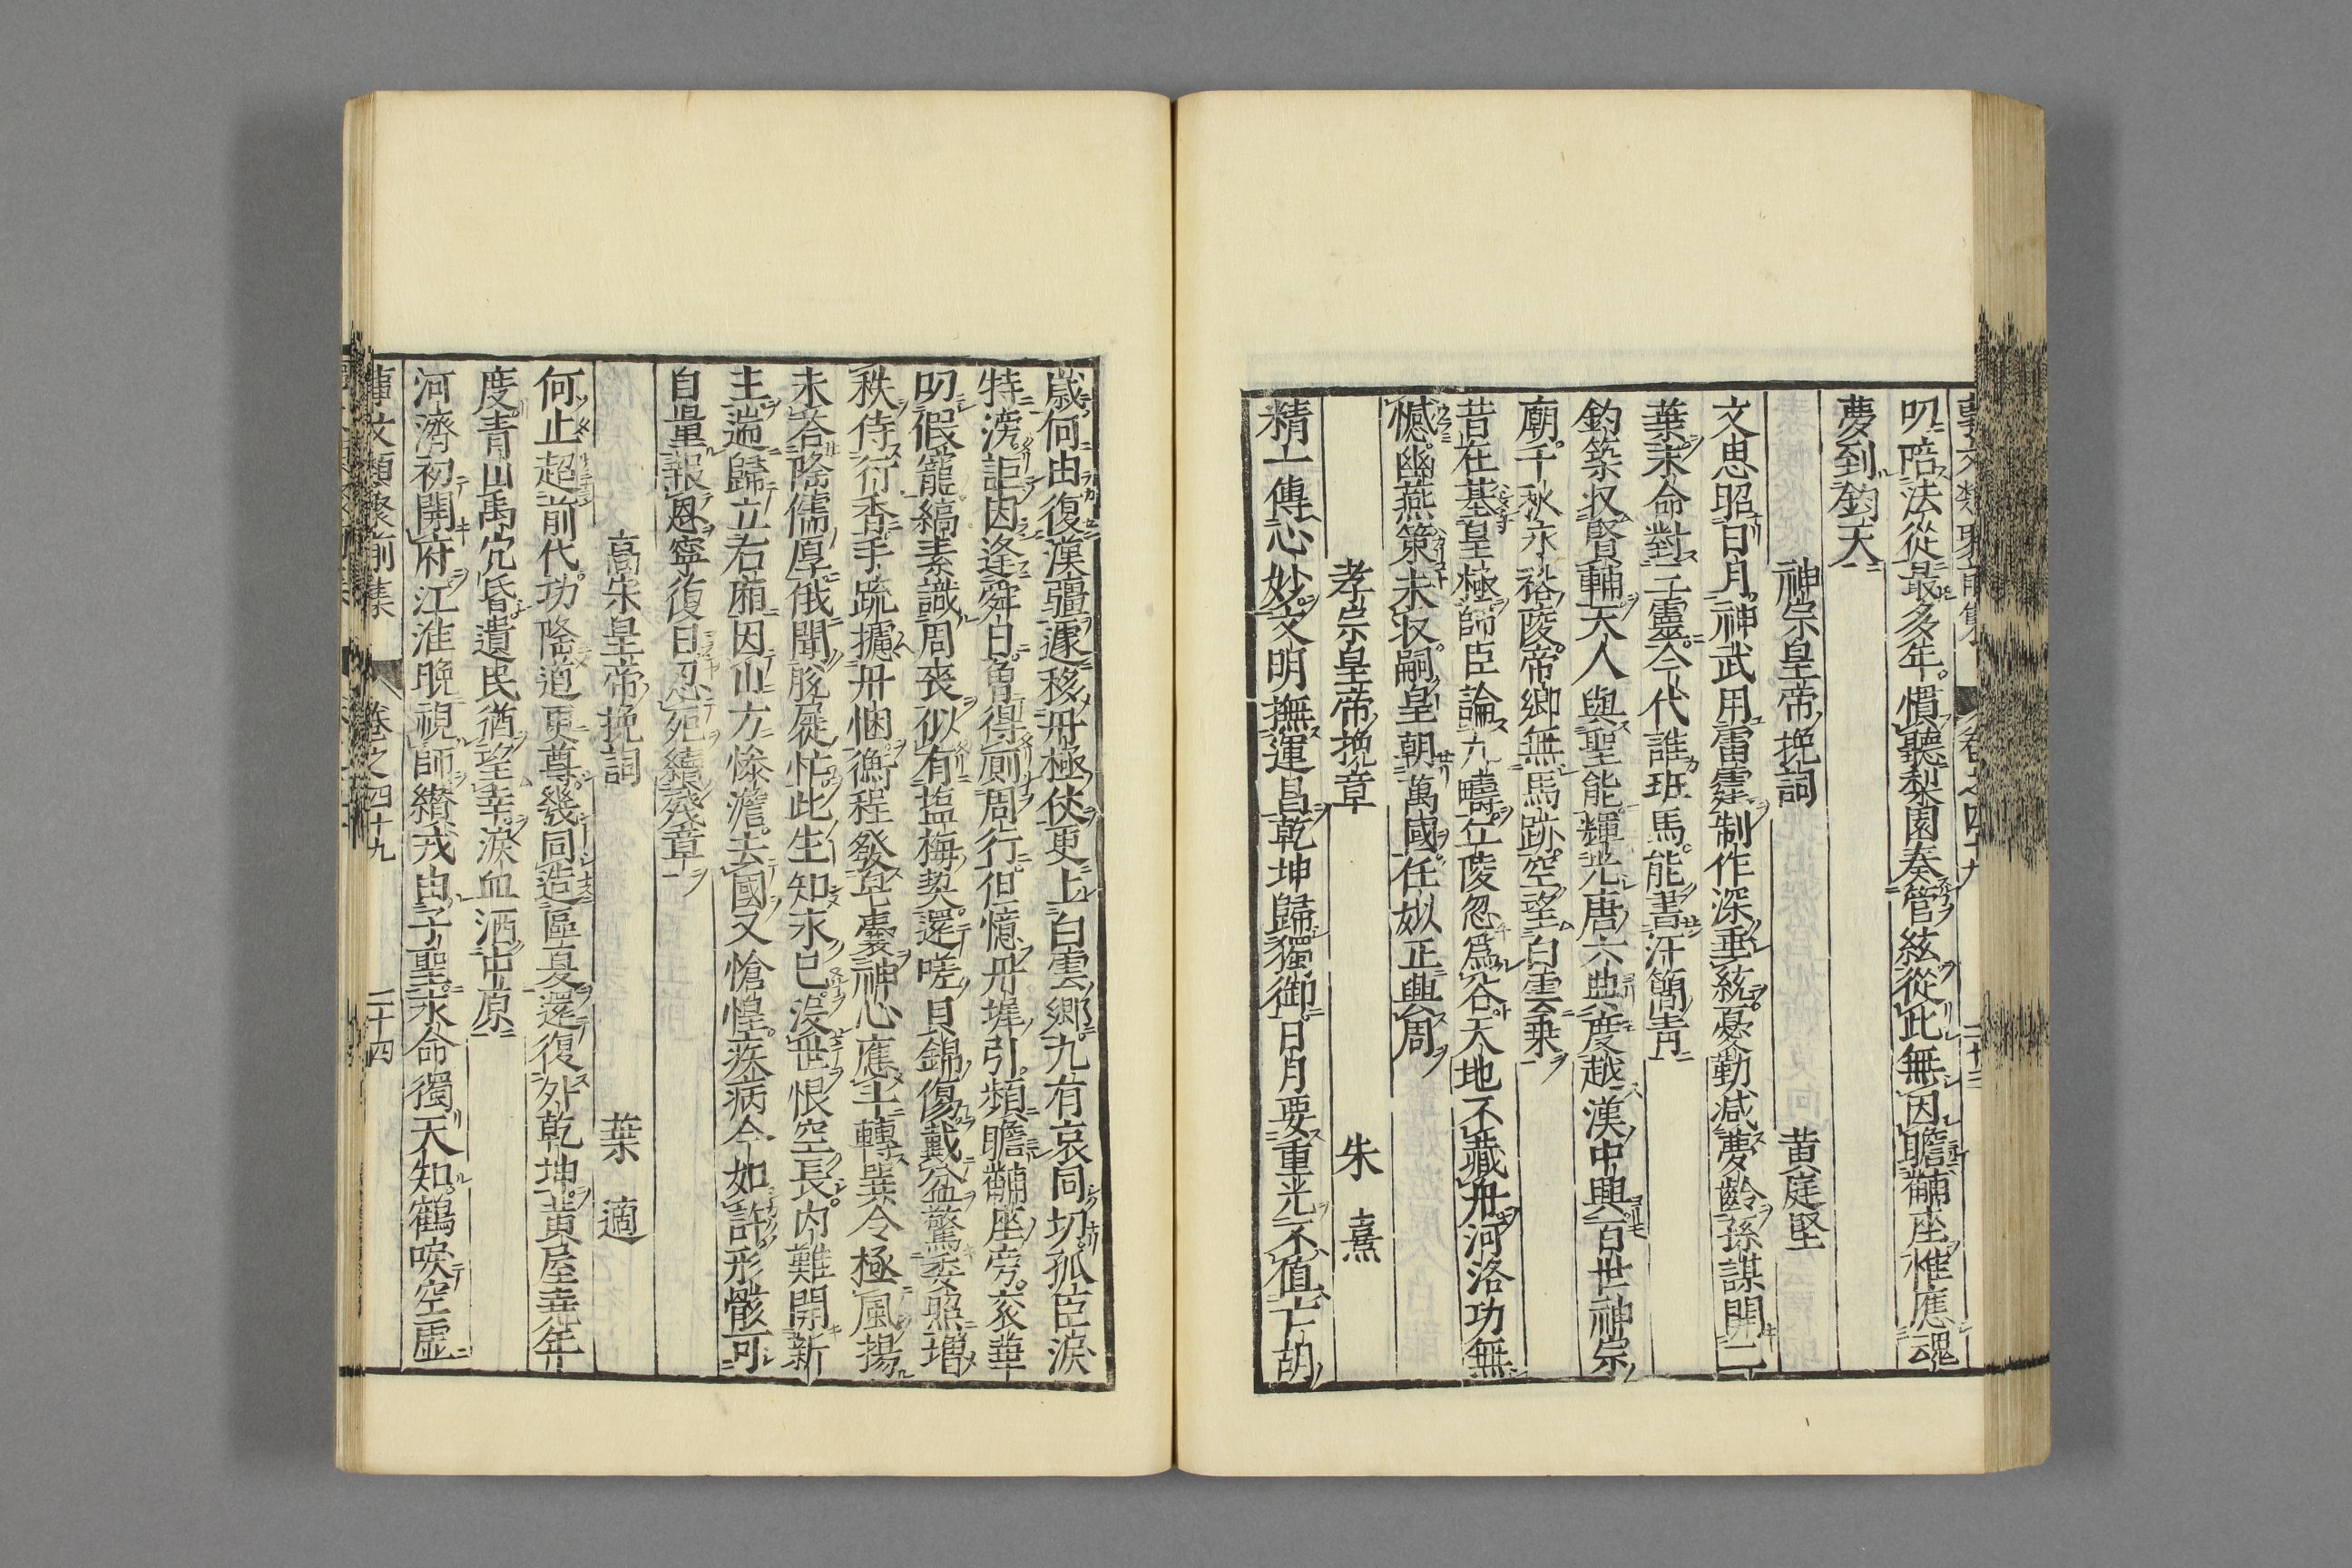 叨陪法從最多年慣聽梨園奏管絃從此無因瞻黼座惟應魂
夢到鈞天
神宗皇帝挽詞 黄庭堅
文思昭日月神武用雷霆制作深垂統憂勤減夢齡孫謀開二
葉末命對三靈今代誰班馬能書汗簡青
釣築収賢輔天人與聖能輝光唐六典度越漢中興百世神宗
廟千秋永裕陵帝郷無馬跡空望白雲乗
昔在基皇極師臣論九疇丘陵忽為谷天地不藏舟河洛功無
憾幽燕策未収嗣皇朝萬國任姒正興周
孝宗皇帝挽章 朱熹
精一傳心妙文明撫運昌乾坤歸獨御日月要重光不值亡胡
歳何由復漢疆遽移丹極仗更上白雲郷九有哀同切孤臣涙
特滂詎因逢舜日曽得厠周行但憶丹墀引頻瞻黼座旁衮華
叨假寵縞素識周喪似有塩梅契還嗟貝錦傷戴盆驚委照増
秩待行香手疏攄丹悃衡程發皂囊神心應斗轉巽令極風揚
未荅隆儒厚俄聞脱屣忙此生知永已没世恨空長内難開新
主遄歸立右廂因山方慘澹去國又愴惶疾病今如許形骸可
自量報恩寧復日忍死續殘章
高宗皇帝挽詞 葉適
何止超前代功隆道更尊幾同造區夏還復外乾坤黄屋堯年
度青山禹穴昏遺民猶望幸涙血洒中原
河濟初開府江淮晩視師纉戎由子聖永命獨天知鶴唳空虚
事文類聚前集 卷之四十九 二十四